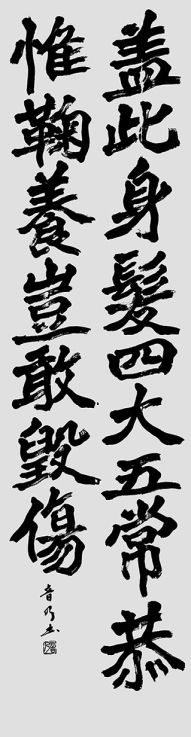 盖此身髮四大五常恭
惟鞠養豈敢毀傷
音乃书